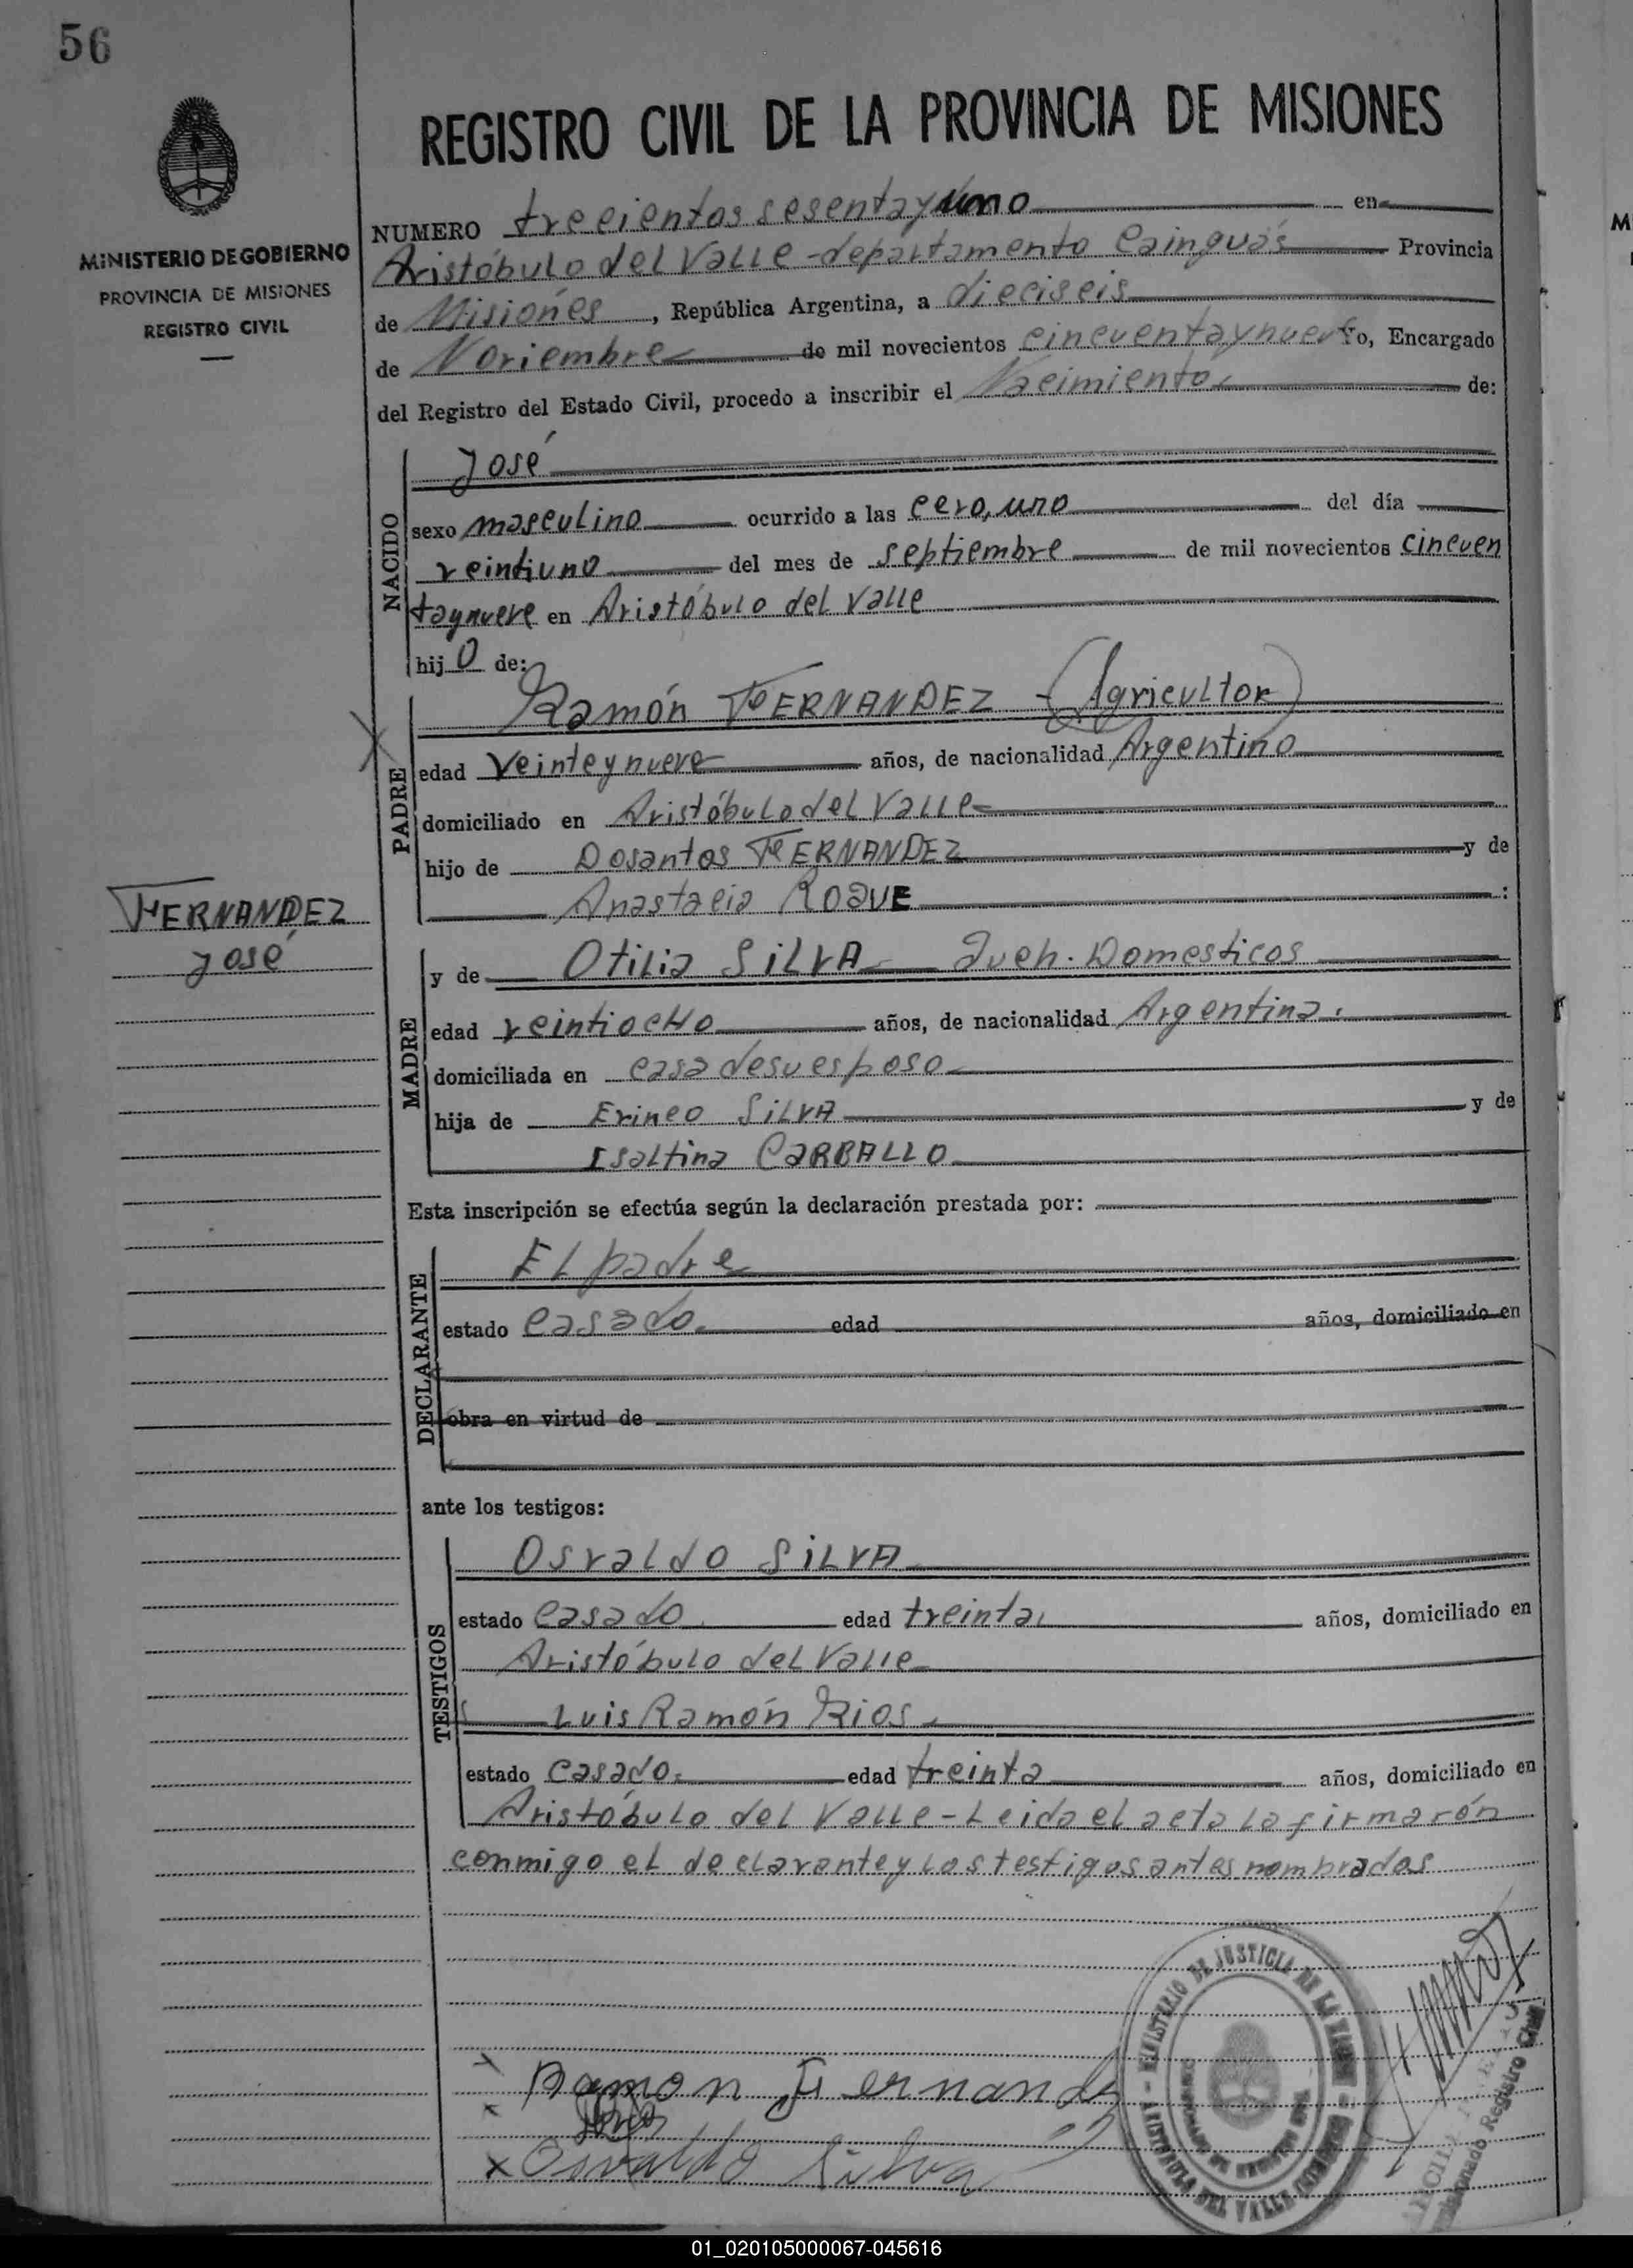 56
REGISTRO CIVIL DE LA PROVINCIA DE MISIONES
MINISTERIO DE GOBIERNO
PROVINCIA DE MISIONES
REGISTRO CIVIL
NUMERO trecientos sesentayuno en
Aristóbulo del Valle - departamento Cainguás Provincia
de Misiones, República Argentina, a dieciseis
de Noviembre de mil novecientos cincuentaynueve Yo, Encargado
del Registro del Estado Civil, procedo a inscribir el Nacimiento de:
NACIDO
José
sexo masculino ocurrido a las cero, uno del día
veintiuno del mes de septiembre de mil novecientos cincuen
taynueve en Aristóbulo del Valle
hijo de:
PADRE
Ramón FERNANDEZ - (Agricultor)
edad Veinteynueve años, de nacionalidad Argentino
domiciliado en Aristóbulo del Valle
hijo de Dosantos FERNANDEZ y de
Anastacia ROQUE :
FERNANDEZ
José
MADRE
y de Otilia SILVA Queh. Domesticos
edad veintiocho años, de nacionalidad Argentina.
domiciliada en casa de su esposo
hija de Erineo SILVA y de
Isaltina CARBALLO
Esta inscripción se efectúa según la declaración prestada por:
DECLARANTE
El padre
estado casado. edad años, domiciliado en
obra en virtud de
ante los testigos:
TESTIGOS
Osvaldo SILVA
estado casado edad treinta años, domiciliado en
Aristóbulo del Valle
Luis Ramón Rios
estado casado. edad treinta años, domiciliado en
Aristóbulo del Valle - Leida el acta la firmarón
conmigo el declarante y los testigos antes nombrados
MINISTERIO DE JUSTICIA DE LA
ARISTOBULO DEL VALLE
Ramon Fernandez
Osvaldo Silva
Registro Civil
01_020105000067-045616